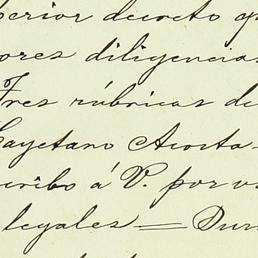 perior decreto q
ores diligencias
Tres rúbricas de
Cayetano Acosta-
cribo á V. por v
legales = Dur